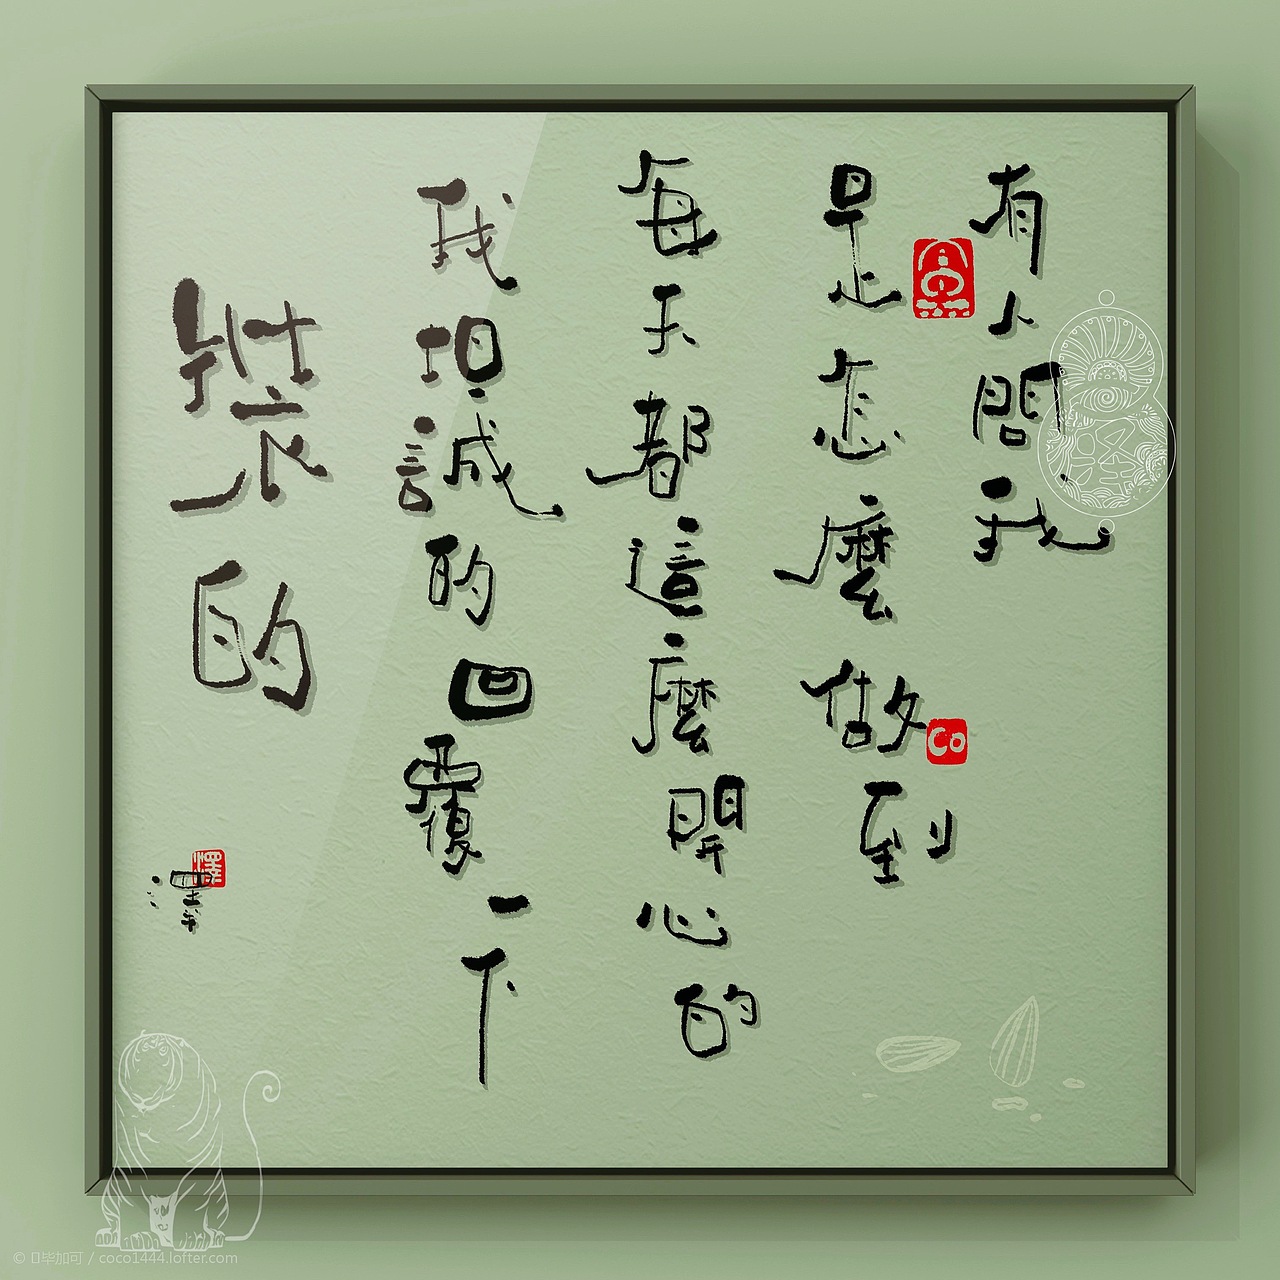 有人問我
是怎麼做到
每天都這麼開心的
我坦誠的回覆一下
裝的
澤
CO
© 毕加可 / coco1444.lofter.com